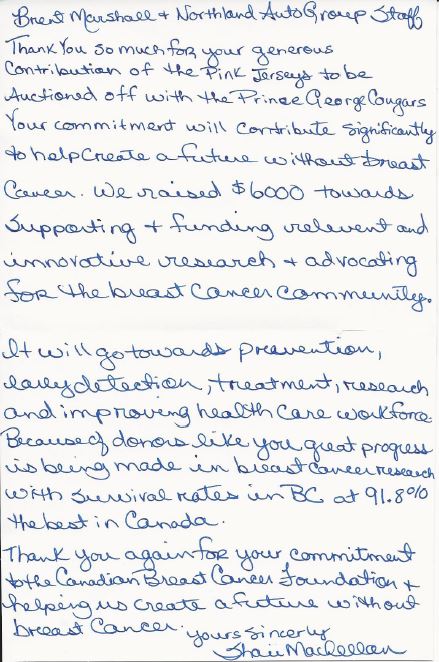 Brent Marshall + Northland Auto Group Staff
Thank You so much for your generous
Contribution of the Pink Jerseys to be
Auctioned off with the Prince George Cougars
Your commitment will contribute significantly
to help Create a future without breast
Cancer. We raised $6000 towards
Supporting + funding relevent and
innovative research + advocating
for the breast Cancer Community.
It will go towards preevention,
early detection, treatment, research
and improving health Care workforce.
Because of donors like you great progress
is being made in breast cancer research
with survival rates in BC at 91.8%
the best in Canada.
Thank you again for your commitment
to the Canadian Breast Cancer Foundation +
helping us create a future without
breast Cancer. yours sincerly
MacLellan